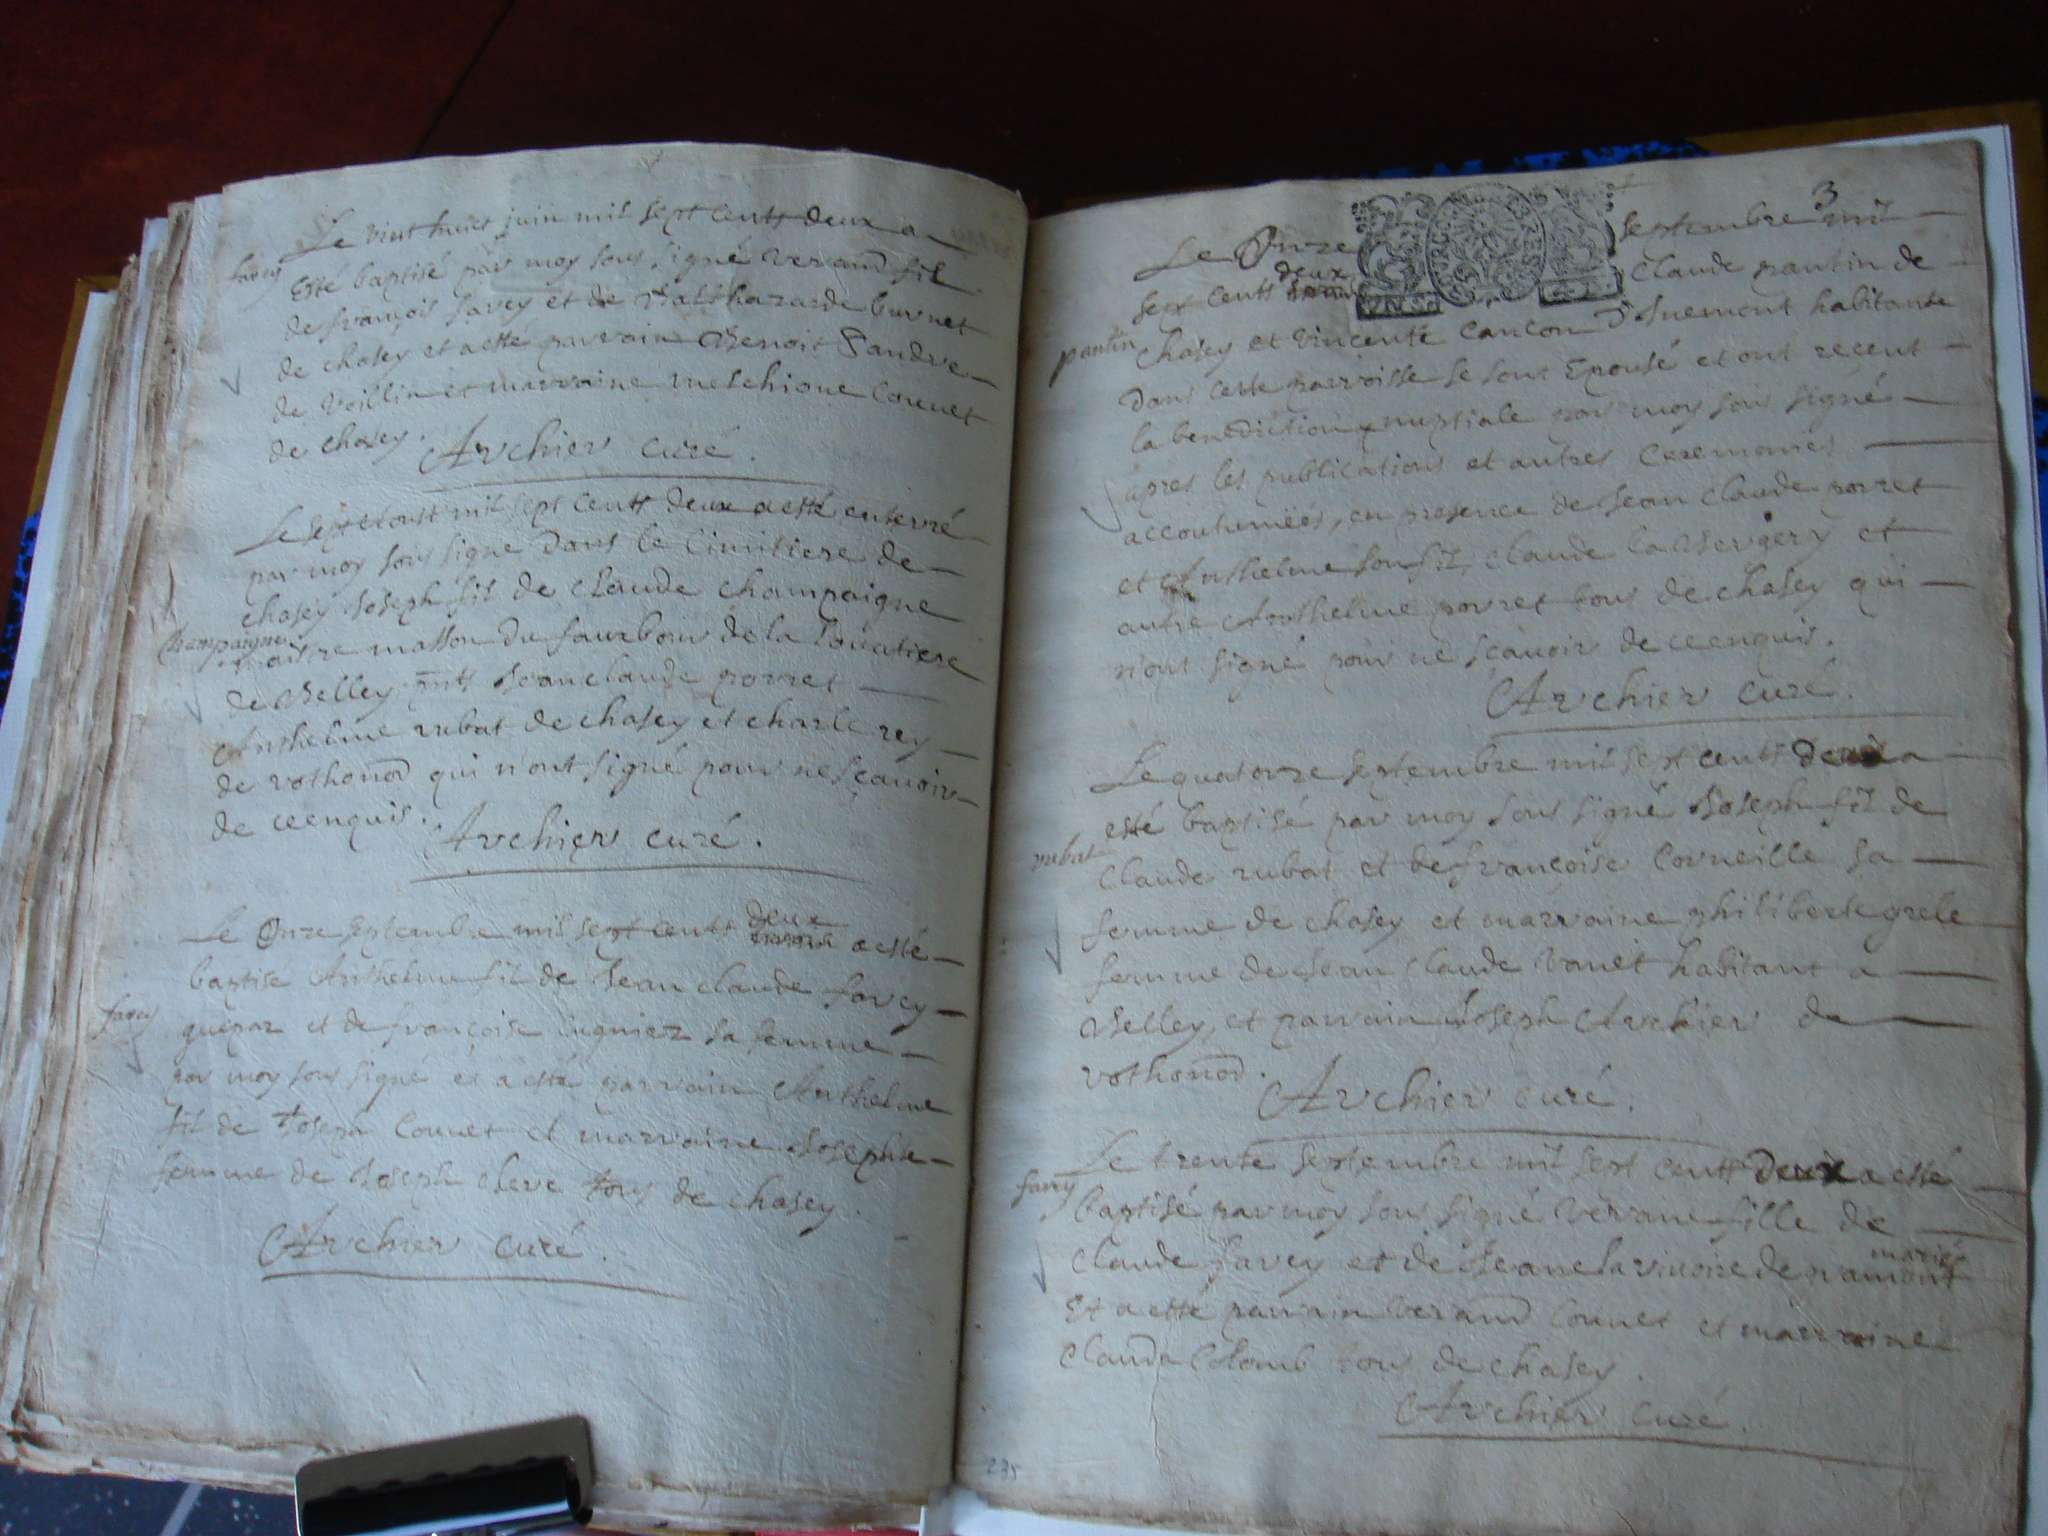 Le vint huict juin mil sept centt deux a
favey
Esté baptisé par moy sous signé verand fil
de françois favey et de Balthazarde burnet
de chasey et a esté parrain Benoit
de Voillin et marraine melchione Couuet
de chasey.
Archier curé.
Le sept Aoust mil sept centt deux a esté enterré
par moy sous signé Dans le Cimitiere de
chasey Joseph fil de Claude Champaigne
Champaigne
maistre masson du faurbour de la
de Belley pntt Jean claude porret
Anthelme rubat de chasey et charle rey
de vothonod qui n'ont signé pour ne sçauoir
de ce enquis.
Archier curé.
Le Onze septembre mil sept centt deux a esté
baptisé Anthelme fil de Jean claude favey
favey
guepaz et de françoise sa femme
par moy sous signé et a esté parrain Anthelme
fil de Joseph Couuet et marraine Josephte
femme de Joseph cleve tous de chasey.
Archier curé.
3
Le Onze septembre mil
sept centt deux Claude pantin de
pantin
chasey et Vincente Cancon D'osnement habitante
Dans cette parroisse se sont Epousé et ont receut
la benediction nuptiale par moy sous signé
apres les publications et autres Ceremonies
accoutumées, en presence de Jean Claude porret
et Anthelme son fil, Claude la Bergery et
autre Anthelme porret tous de chasey qui
n'ont signé pour ne sçauoir de ce enquis.
Archier curé.
Le quatorze septembre mil sept centt deux a
esté baptisé par moy sous signé Joseph fil de
rubat
Claude rubat et de françoise Corneille sa
femme de chasey et marraine philiberte grele
femme de Jean Claude habitant a
Belley, et parrain Joseph Archier de
vothonod.
Archier curé.
Le trente septembre mil sept centt deux a esté
favey
baptisé par moy sous signé verane fille de
mariés
Claude favey et de Jeane la vivoire de
Et a esté parrain verand Couuet et marraine
Clauda Colomb tous de chasey.
Archier curé.
235